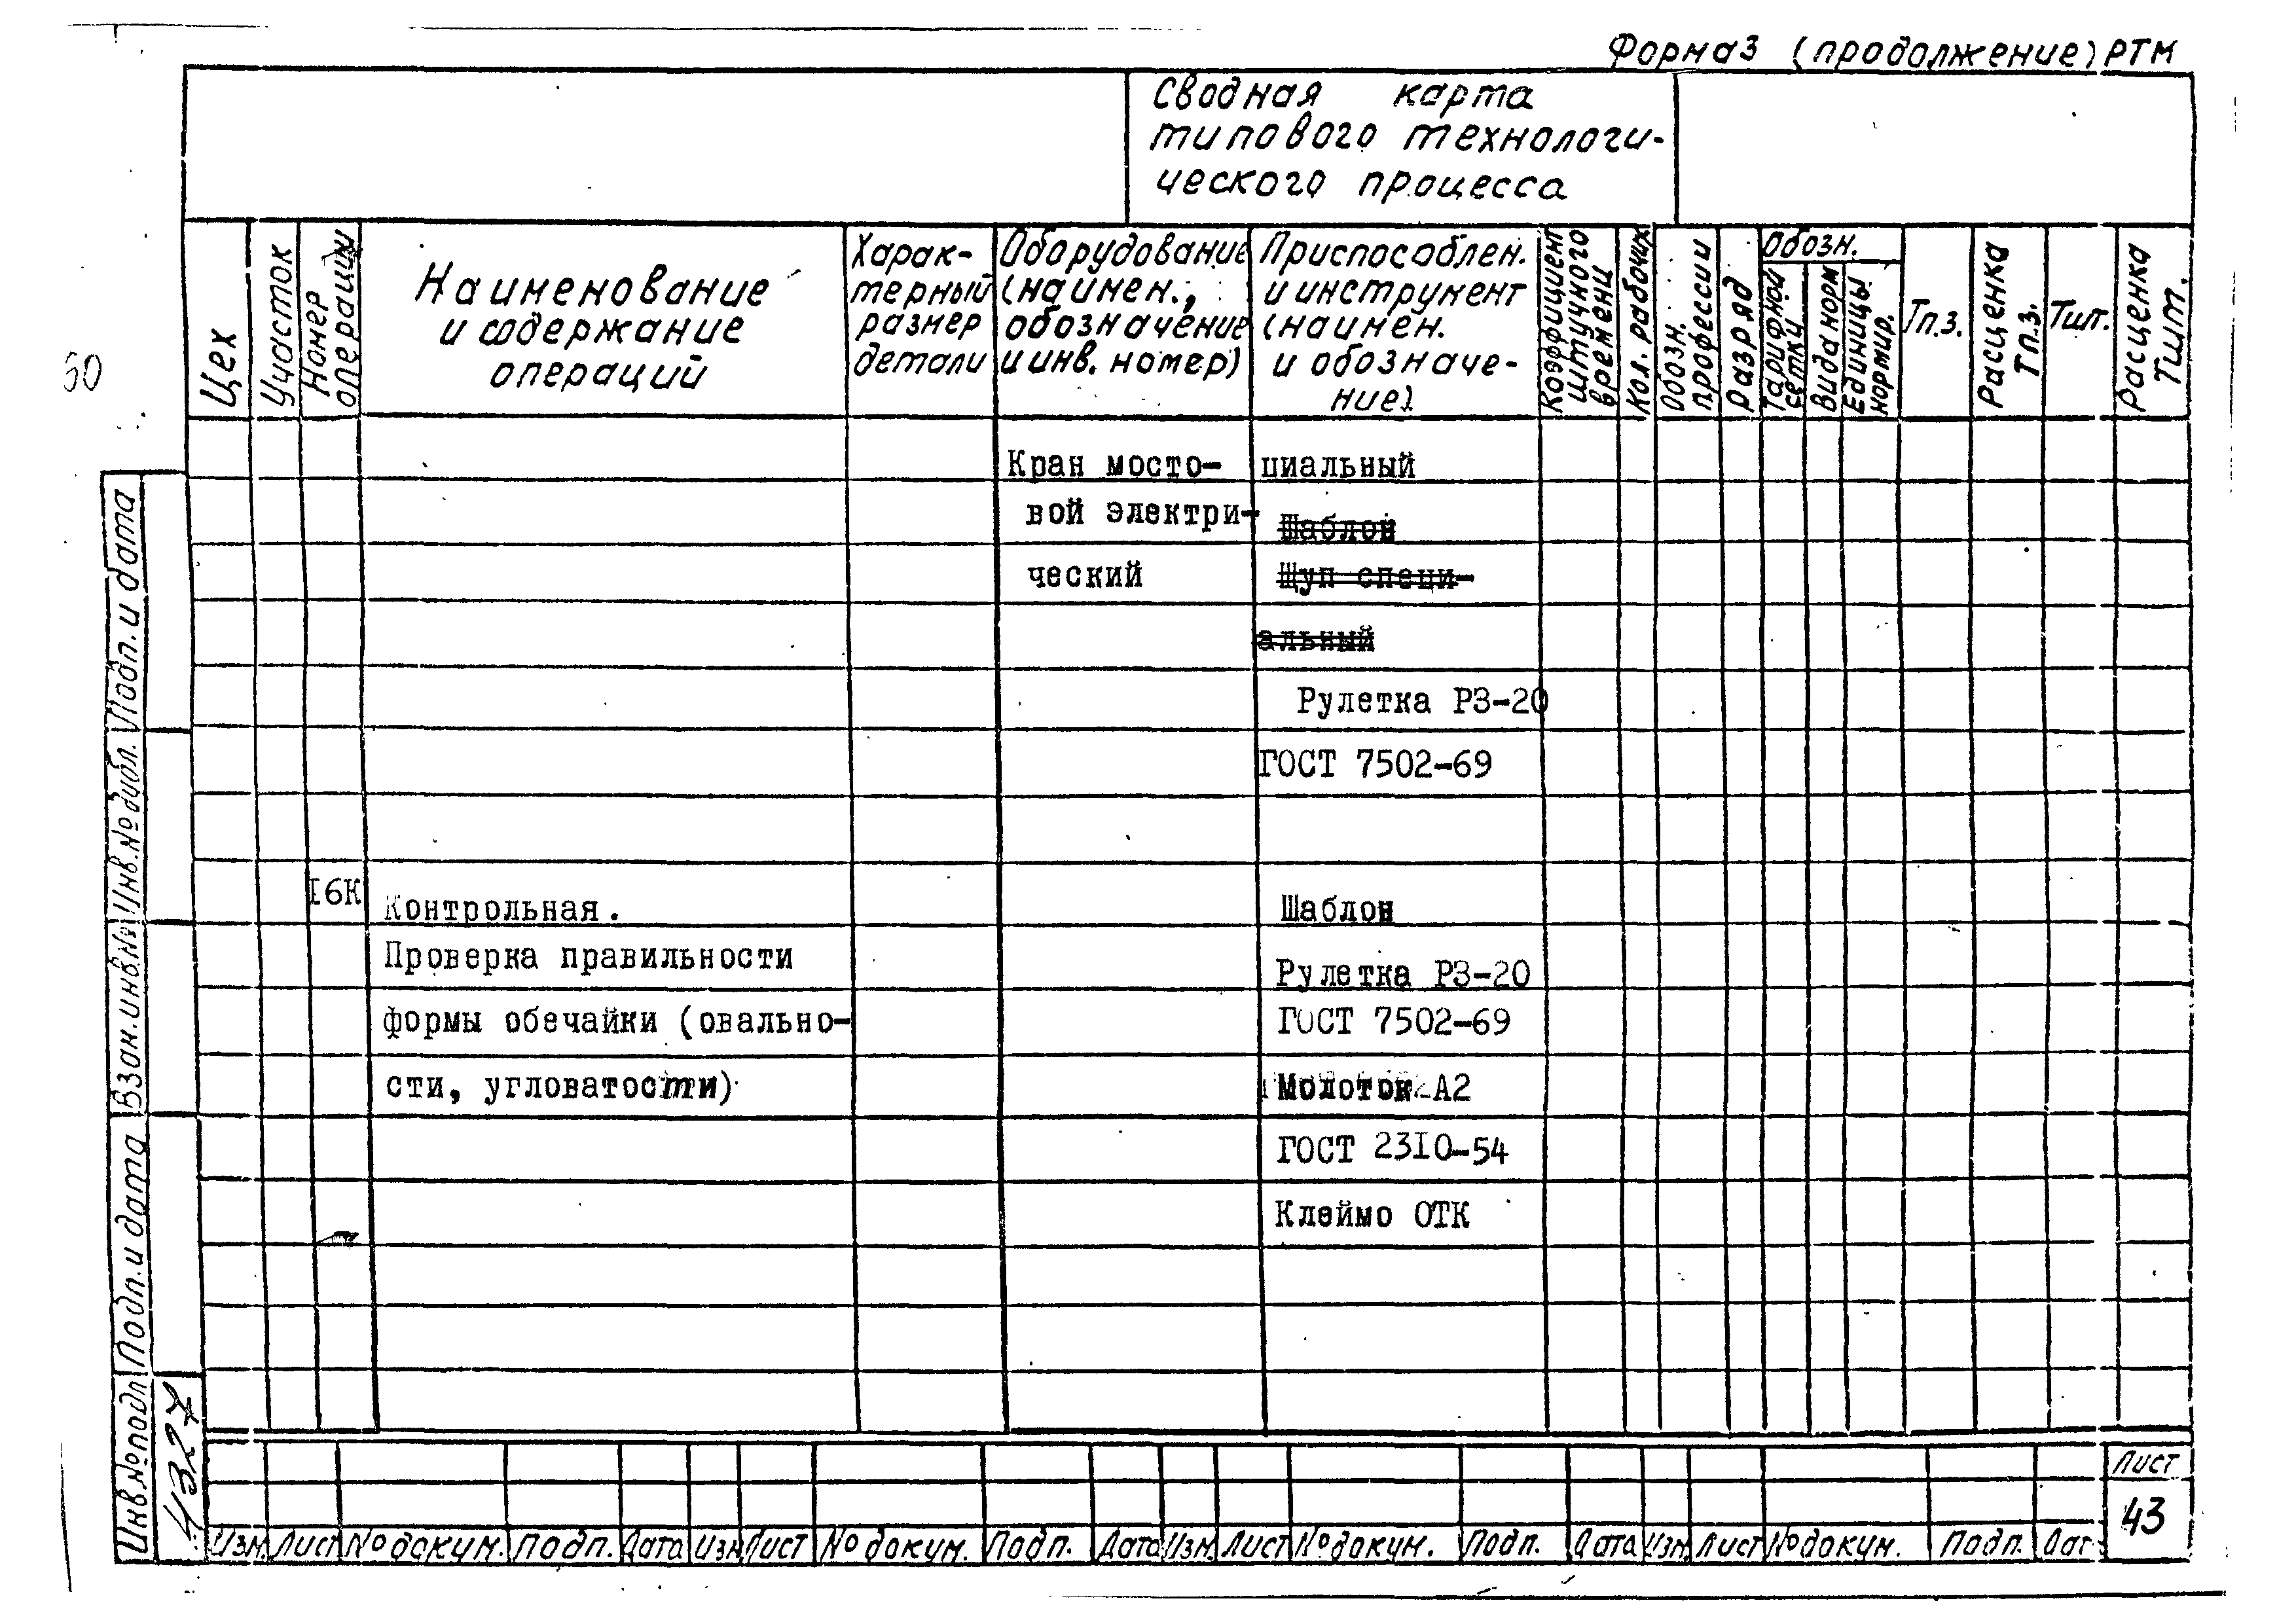 Форма 3 (продолжение) РТМ
Сводная карта
типового технологи-
ческого процесса
Цех
Участок
Номер
операции
Наименование
и содержание
операций
Харак-
терный
размер
детали
Оборудование
(наимен.,
обозначение
и инв. номер)
Приспособлен.
и инструмент
(наимен.
и обозначе-
ние)
Коэффициент
штучного
времени
Кол. рабочих
Обозн.
профессии
Разряд
Обозн.
Тарифной
сетки
Вида норм
Единицы
нормир.
Тп.з.
Расценка
Тп.з.
Тшт.
Расценка
Тшт.
60
Кран мосто- циальный
вой электри- Шаблон
ческий Щуп специ-
альный
Рулетка РЗ-20
ГОСТ 7502-69
I6К Контрольная. Шаблон
Проверка правильности Рулетка РЗ-20
формы обечайки (овально- ГОСТ 7502-69
сти, угловатости) Молоток А2
ГОСТ 23I0-54
Клеймо ОТК
Подп. и дата
Инв.№ дубл.
Взам.инв.№
Подп. и дата
Инв.№ подл
4327
Лист
43
Изм. Лист № докум. Подп. Дата Изм Лист № докум. Подп. Дата Изм. Лист № докум. Подп. Дата Изм Лист № докум. Подп. Дат